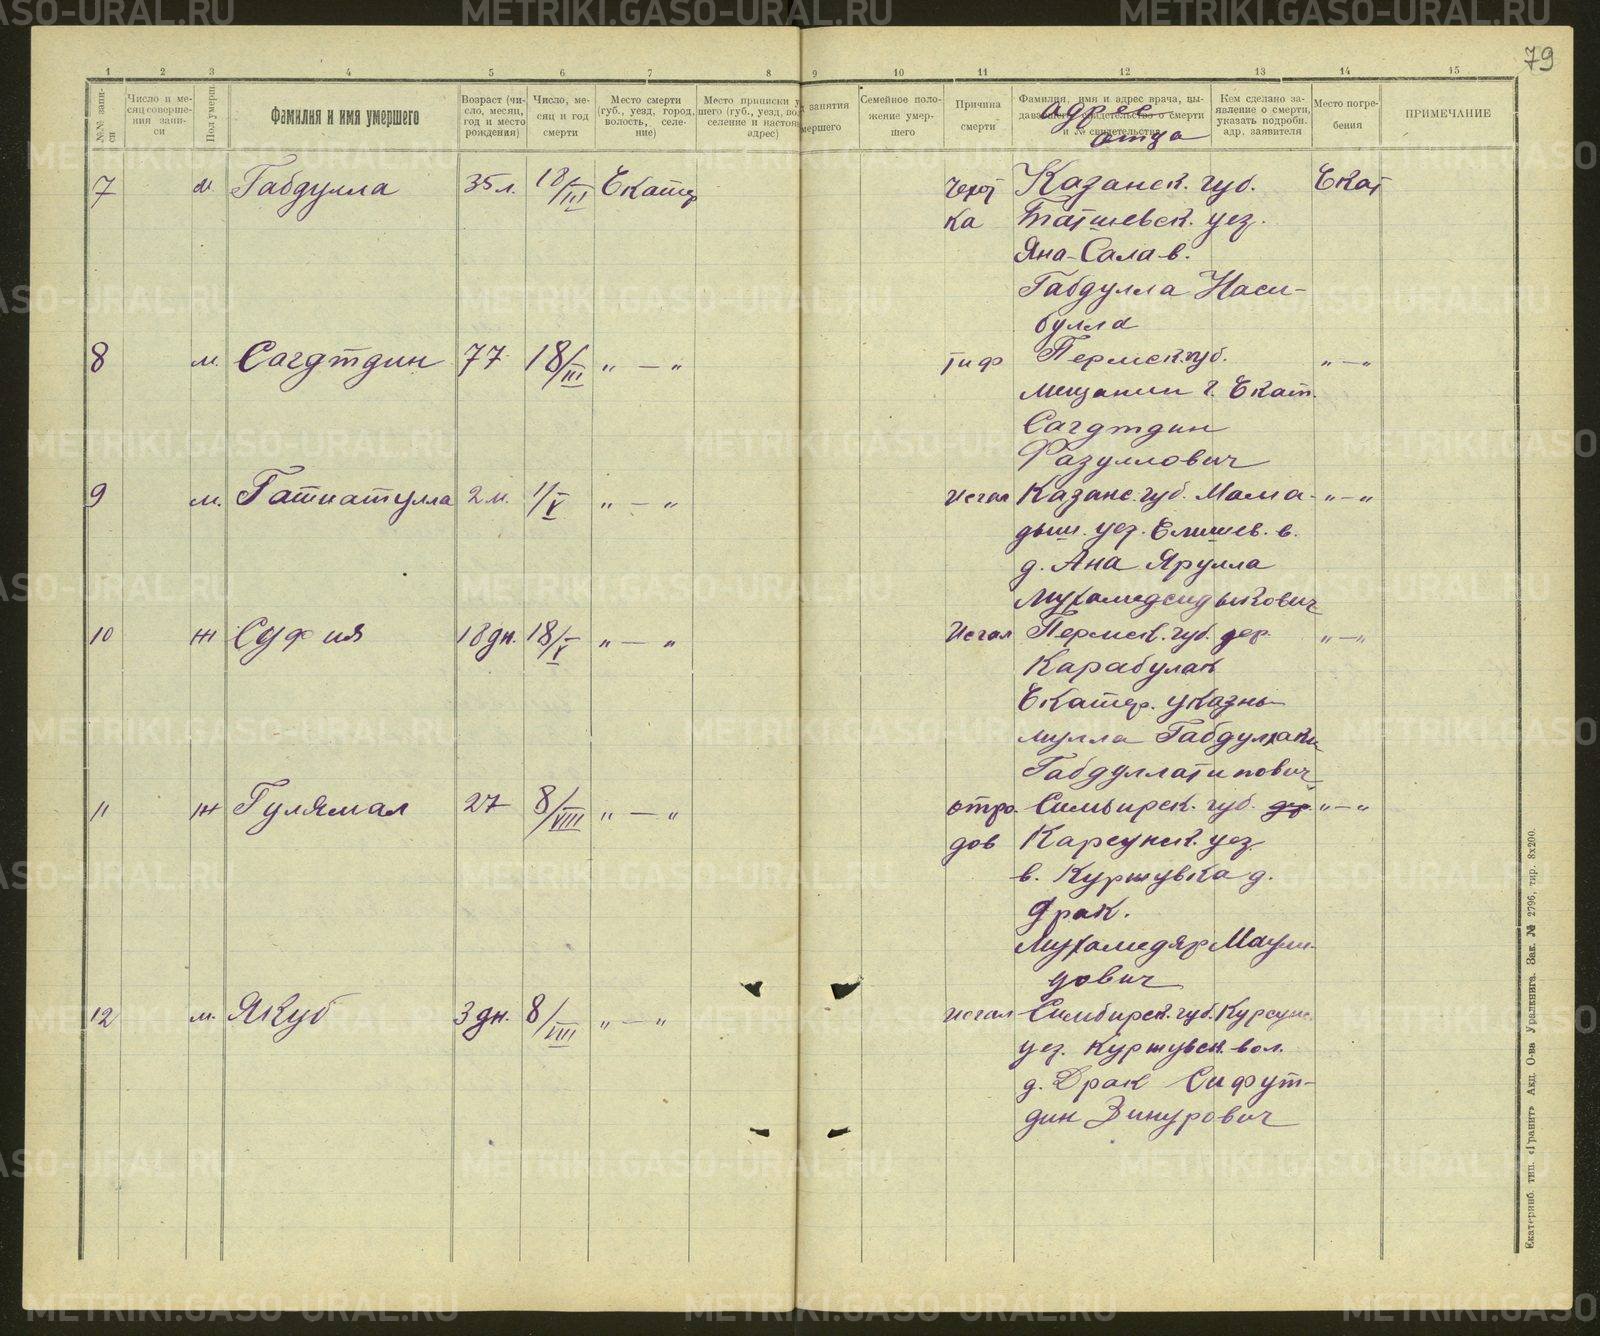 79
1 2 3 4 5 6 7 8 9 10 11 12 13 14 15
№№ записи
Число и месяц совершения записи
Пол умерш.
Фамилия и имя умершего
Возраст (число, месяц, год и место рождения)
Число, месяц и год смерти
Место смерти (губ., уезд, город, волость, селение)
Место приписки у
шего (губ., уезд, вол
селение и настоя
адрес)
занятия
мершего
Семейное положение умершего
Причина смерти
Фамилия, имя и адрес врача, выдавшего свидетельство о смерти и № свидетельства
адрес
отца
Кем сделано заявление о смерти, указать подробн. адр. заявителя
Место погребения
ПРИМЕЧАНИЕ
7 м. Габдулла 35 л. 18/III Екатер Чахот Казанск. губ. Екат
ка уез.
Яна-Сала в.
Габдулла Наси-
булла
8 м. Сагдтдин 77 18/III " — " тиф Пермск. губ. " — "
мещанин г. Екат.
Сагдтдин
Фазуллович
9 м. Гатиатулла 2 м. 1/V " — " исхал Казанс. губ. Мама- " — "
дыш. уез. Елышев. в.
д. Ана Ярулла
Мухамедсидыкович
10 ж Суфия 18 дн. 18/V " — " Исхал Пермск. губ. дер. " — "
Карабулак
Екатер. указны
мулла Габдулхаки
Габдуллатипович
11 ж Гулямал 27 8/VIII " — " отро. Симбирск. губ. дер " — "
дов Карсунск. уез.
в. Куршувка д.
Драк.
Мухамедяр Маули-
дович
12 м. Якуб 3 дн. 8/VIII " — " исхал Симбирск. губ. Курсунс
уез. Куршувск. вол.
д. Драк Сифут-
дин Зинурович
Екатеринб. тип. «Гранит» Акц. О-ва Уралкнига. Зак. № 2796, тир. 8х200.
METRIKI.GASO-URAL.RU